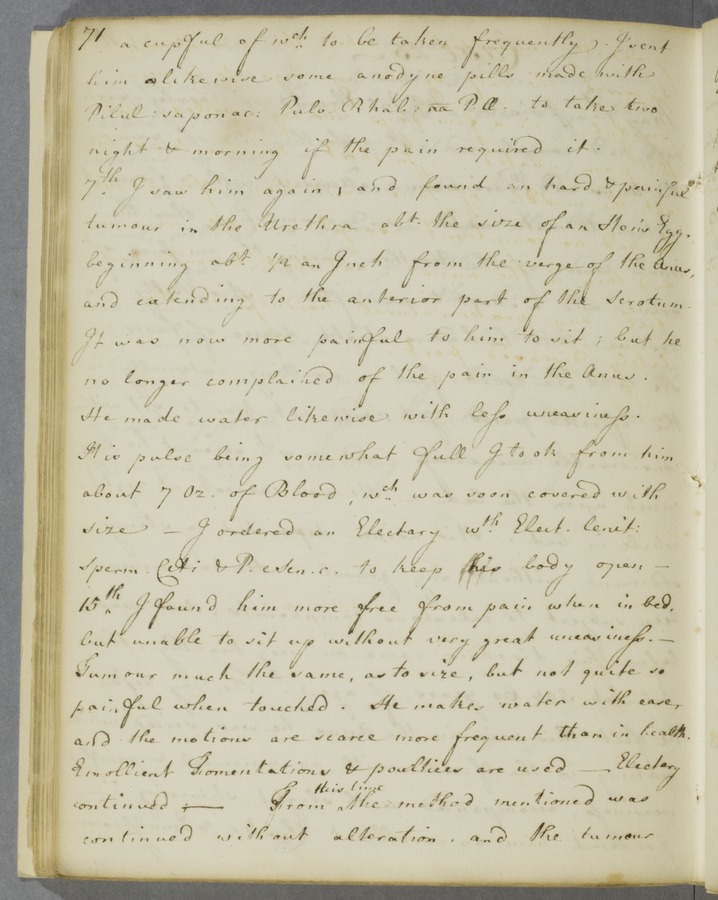 71 a cupful of wch. to be taken frequently). I sent
him likewise some anodyne pills made with
Pilul: saponac: Pulv. Rhab: to take two
night & morning if the pain required it.
7th. I saw him again, and found an hard & painful
tumour in the Urethra abt. the size of an Hen's Egg,
beginning abt. 1/2 an Inch from the verge of the Anus,
and extending to the anterior part of the Scrotum.
It was now more painful to him to sit; but he
no longer complained of the pain in the Anus.
He made water likewise with less uneasiness.
His pulse being somewhat full I took from him
about 7 Oz. of Blood, wch. was soon covered with
size — I ordered an Electary wth. Elect. lenit:
Sperm. Ceti & P. e Sen. c. to keep his body open —
15th. I found him more free from pain when in bed,
but unable to sit up without very great uneasiness. —
Tumour much the same, as to size, but not quite so
painful when touched. He makes water with ease,
and the motions are scarce more frequent than in health.
Emollient Fomentations & poultices are used — Electary
continued — From this time the method mentioned was
continued without alteration, and the tumour